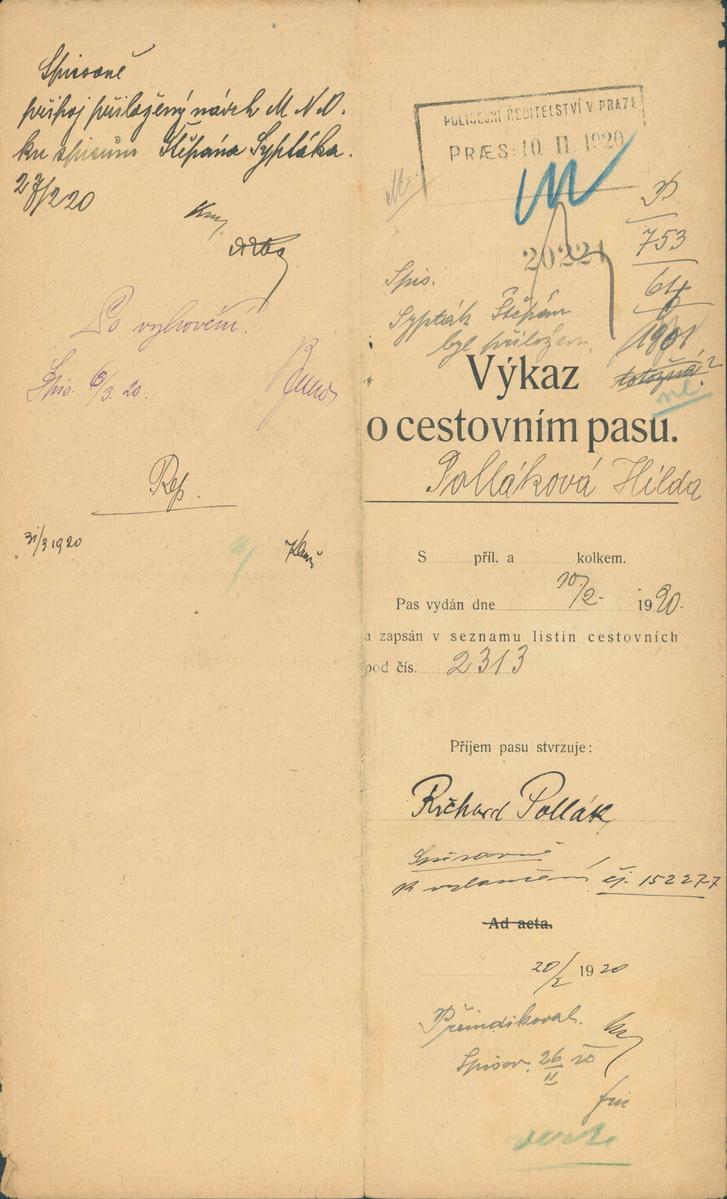 Spisovně
připoj přiložený návrh M.N.O.
ku spisům Štěpána Syptáka.
27/2 20
Po vyhovění.
Spis. 6/3. 20.
Rep.
31/3 1920
POLICEJNÍ ŘEDITELSTVÍ V PRAZE
PRÆS: 10. II. 1920
20221
P
753
64
1901
totožná?
ne
Spis.
Sypták Štěpán
byl přiložen.
Výkaz
o cestovním pasu.
Polláková Hilda
S příl. a kolkem.
Pas vydán dne 10/2 1920.
a zapsán v seznamu listin cestovních
pod čís. 2313
Příjem pasu stvrzuje:
Richard Pollák
Spisovně
k vyloučení čj. 152277
Ad acta.
20/2 1920
Přeindikoval.
Spisov. 26/II 20
verte